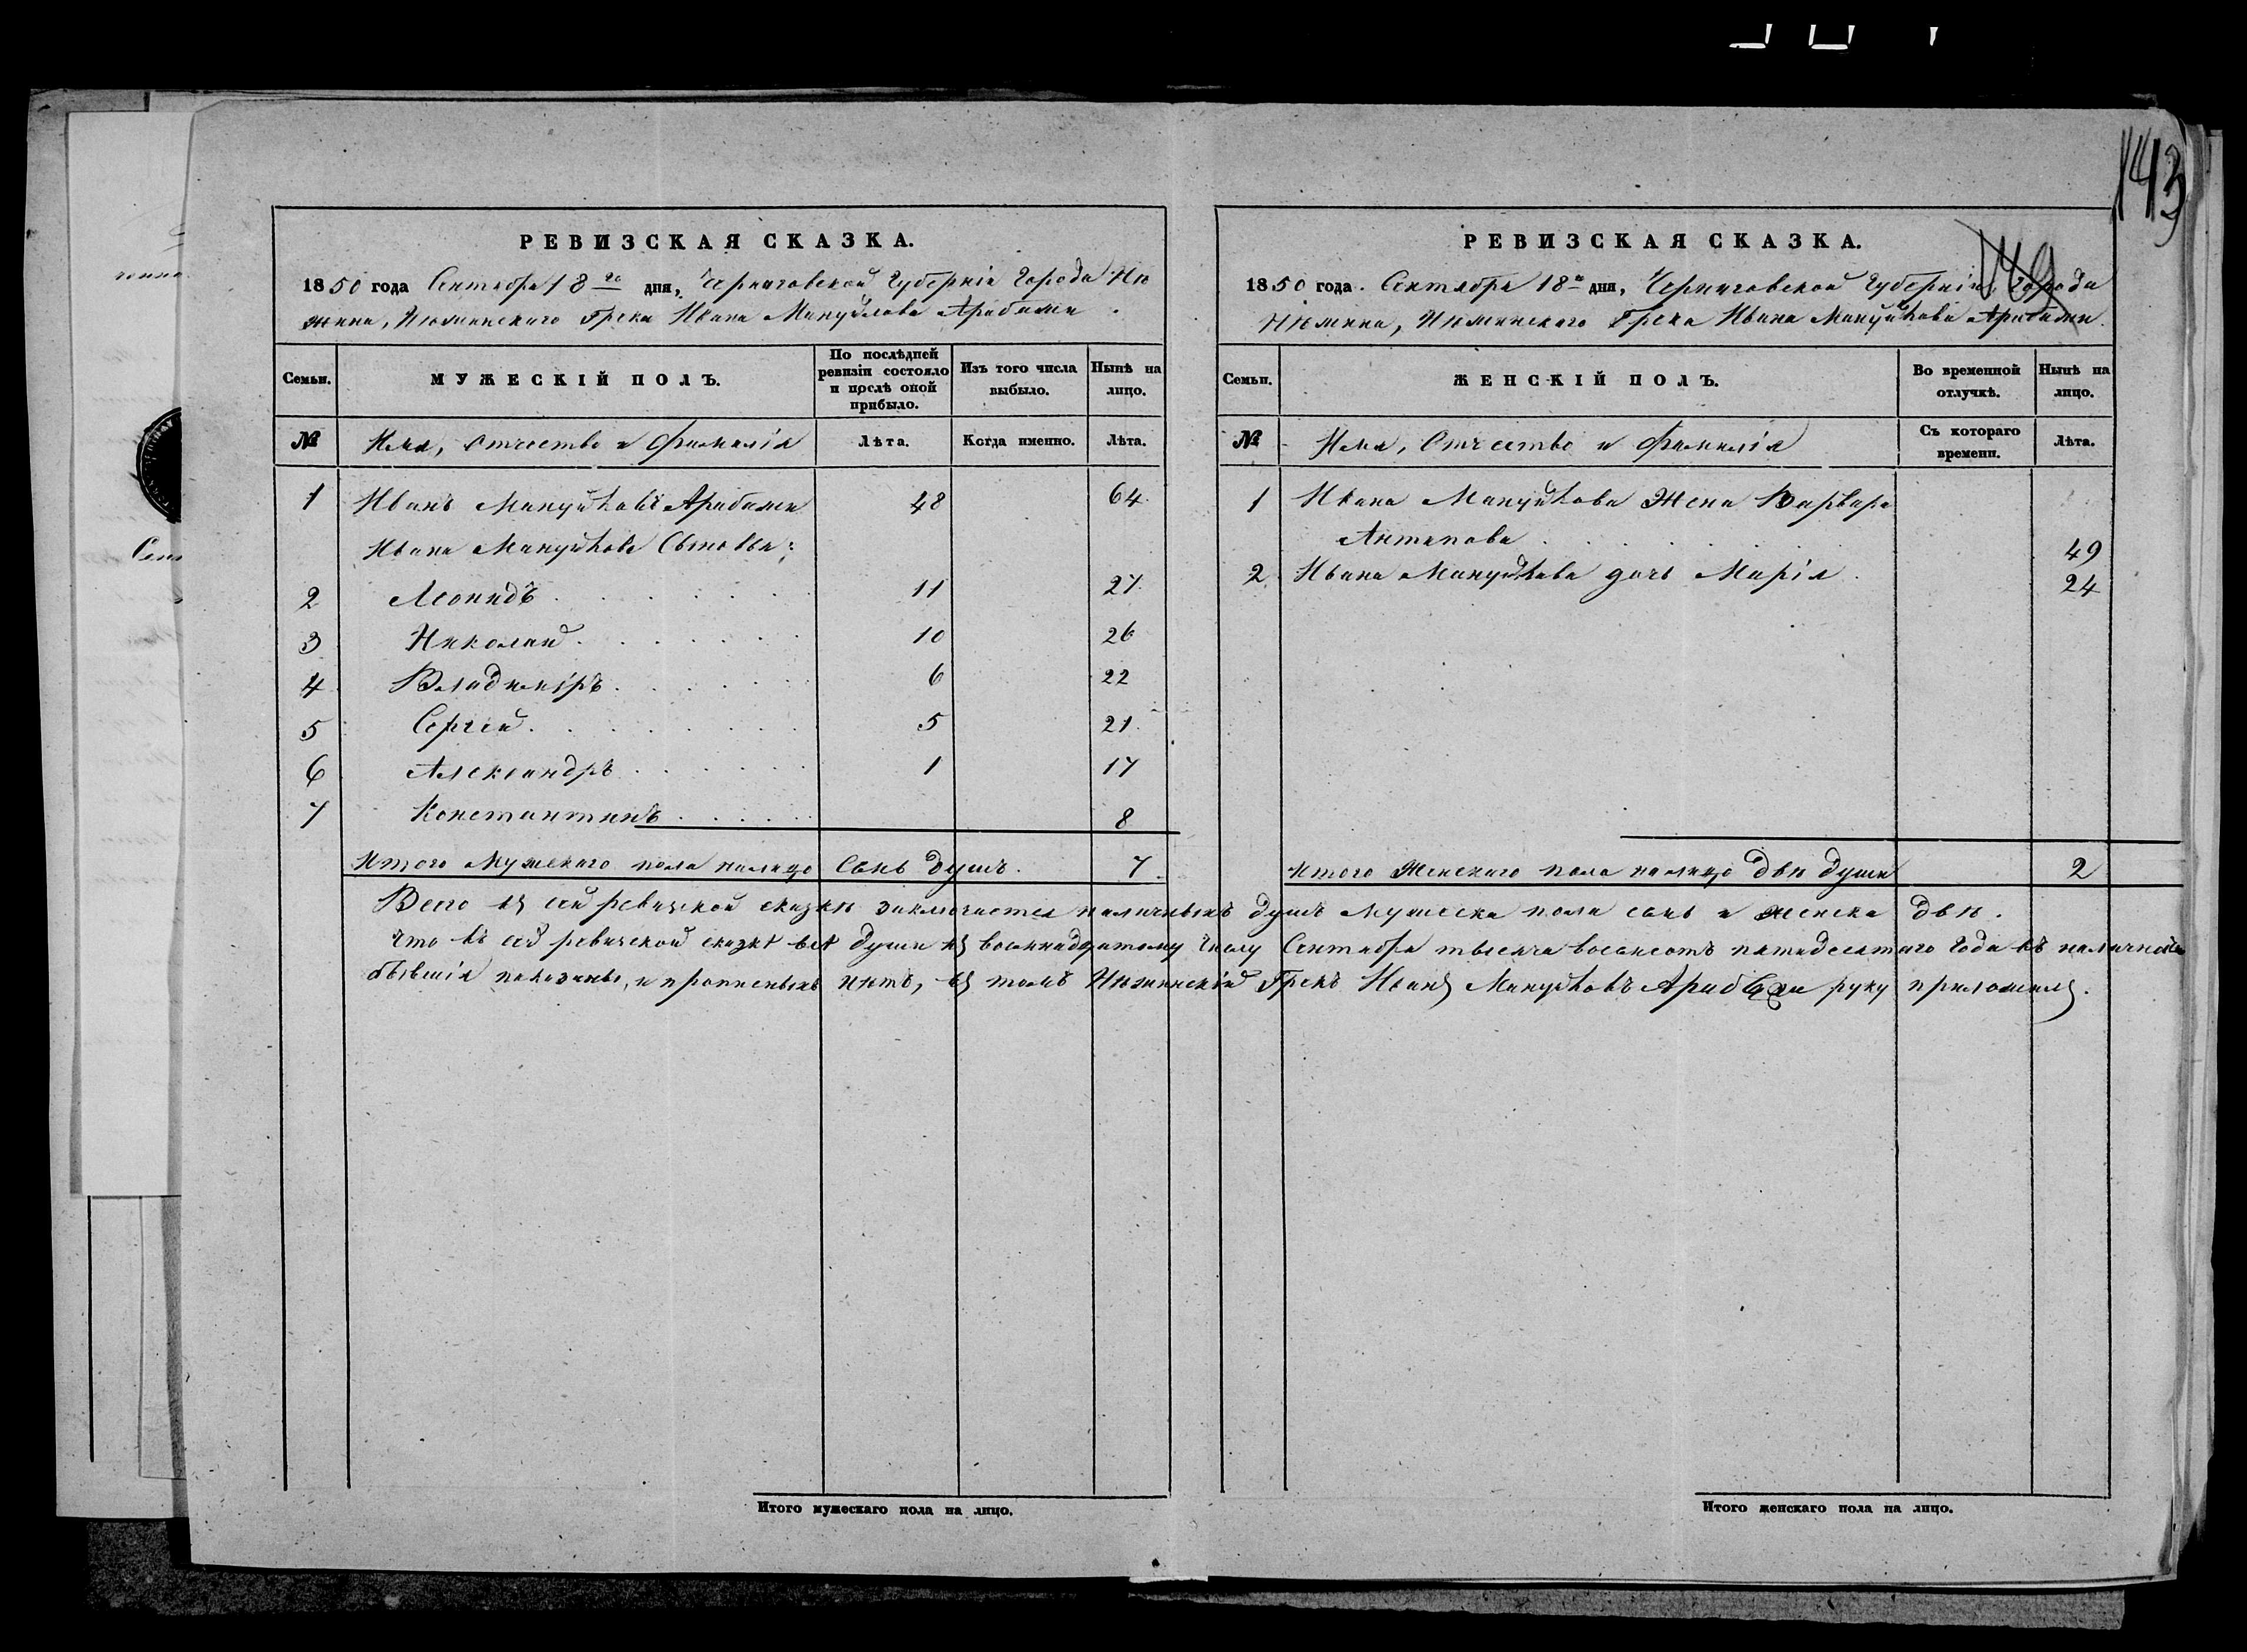 143
РЕВИЗСКАЯ СКАЗКА.
1850 года Сентября 18го дня, Черниговской Губерніи Города Нѣ
жина, Нѣжинскаго Грека Ивана Мануйлова Арабажи.
Семьи.
МУЖЕСКІЙ ПОЛЪ.
По послѣдней ревизіи состояло и послѣ оной прибыло.
Изъ того числа выбыло.
Нынѣ на лицо.
№
Имя, Отчество и Фамилія
Лѣта.
Когда именно.
Лѣта.
1 Иванъ Мануйловъ Арабажи 48 64
Ивана Мануйлова Сыновья:
2 Леонидъ 11 27
3 Николай 10 26
4 Владиміръ 6 22
5 Сергей 5 21
6 Александръ 1 17
7 Константинъ 8
Итого Мужскаго пола налицо Семь душъ. 7.
РЕВИЗСКАЯ СКАЗКА.
1850 года. Сентября 18го дня, Черниговской Губерніи, Города
Нѣжина, Нѣжинскаго Грека Ивана Мануйлова Арабажи.
Семьи.
ЖЕНСКІЙ ПОЛЪ.
Во временной отлучкѣ.
Нынѣ на лицо.
№
Имя, Отчество и Фамилія
Съ котораго времени.
Лѣта.
1 Ивана Мануйлова Жена Варвара
Антипова 49
2 Ивана Мануйлова дочь Марія 24
Итого Женскаго пола налицо двѣ души 2
Всего въ сей ревизской сказкѣ заключается наличныхъ душъ мужеска пола семь и женска двѣ.
Что въ сей ревизской сказкѣ всѣ души къ восемнадцатому числу Сентября тысяча восемсотъ пятидесятаго года въ наличности
бывшія показаны, и прописныхъ нѣтъ, въ томъ Нѣжинскій Грекъ Иванъ Мануйловъ Арабажи руку приложилъ.
Итого мужескаго пола на лицо.
Итого женскаго пола на лицо.